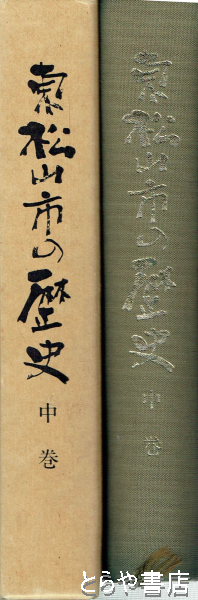 東松山市の歴史
中巻
東松山市の歴史
中巻
とらや書店